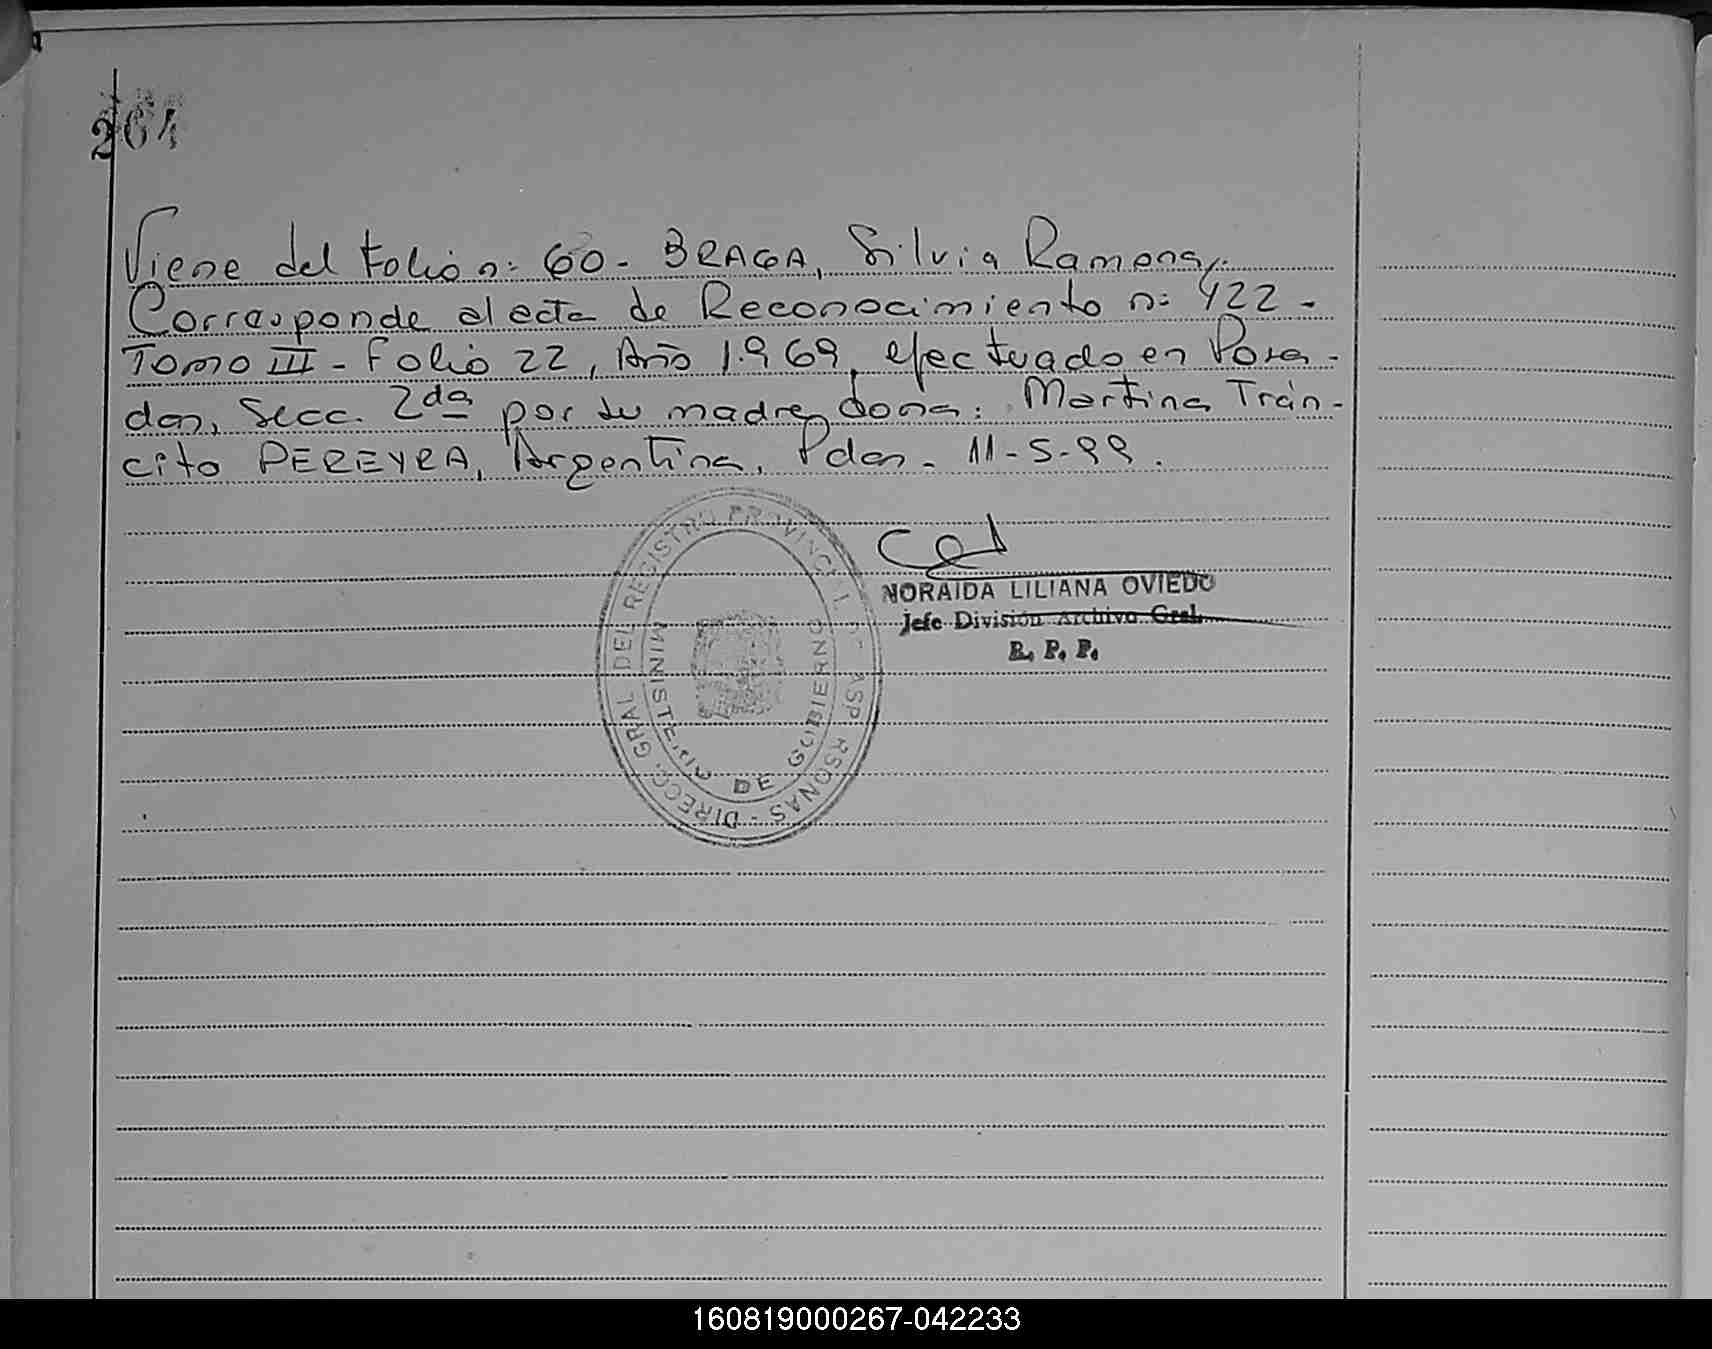 264
Viene del Folio n: 60 - BRAGA, Silvia Ramona,.
Corresponde al acta de Reconocimiento n: 422 -
Tomo III - Folio 22, Año 1.969, efectuado en Posa-
das, Secc. 2da por su madre, doña: Martina Trán-
cito PEREYRA, Argentina. Pdas - 11-5-99.
NORAIDA LILIANA OVIEDO
Jefe División Archivo Gral.
R. P. P.
DIRECC. GRAL DEL REGISTRO PROVINCIAL DE LAS PERSONAS -
MINISTERIO DE GOBIERNO
160819000267-042233